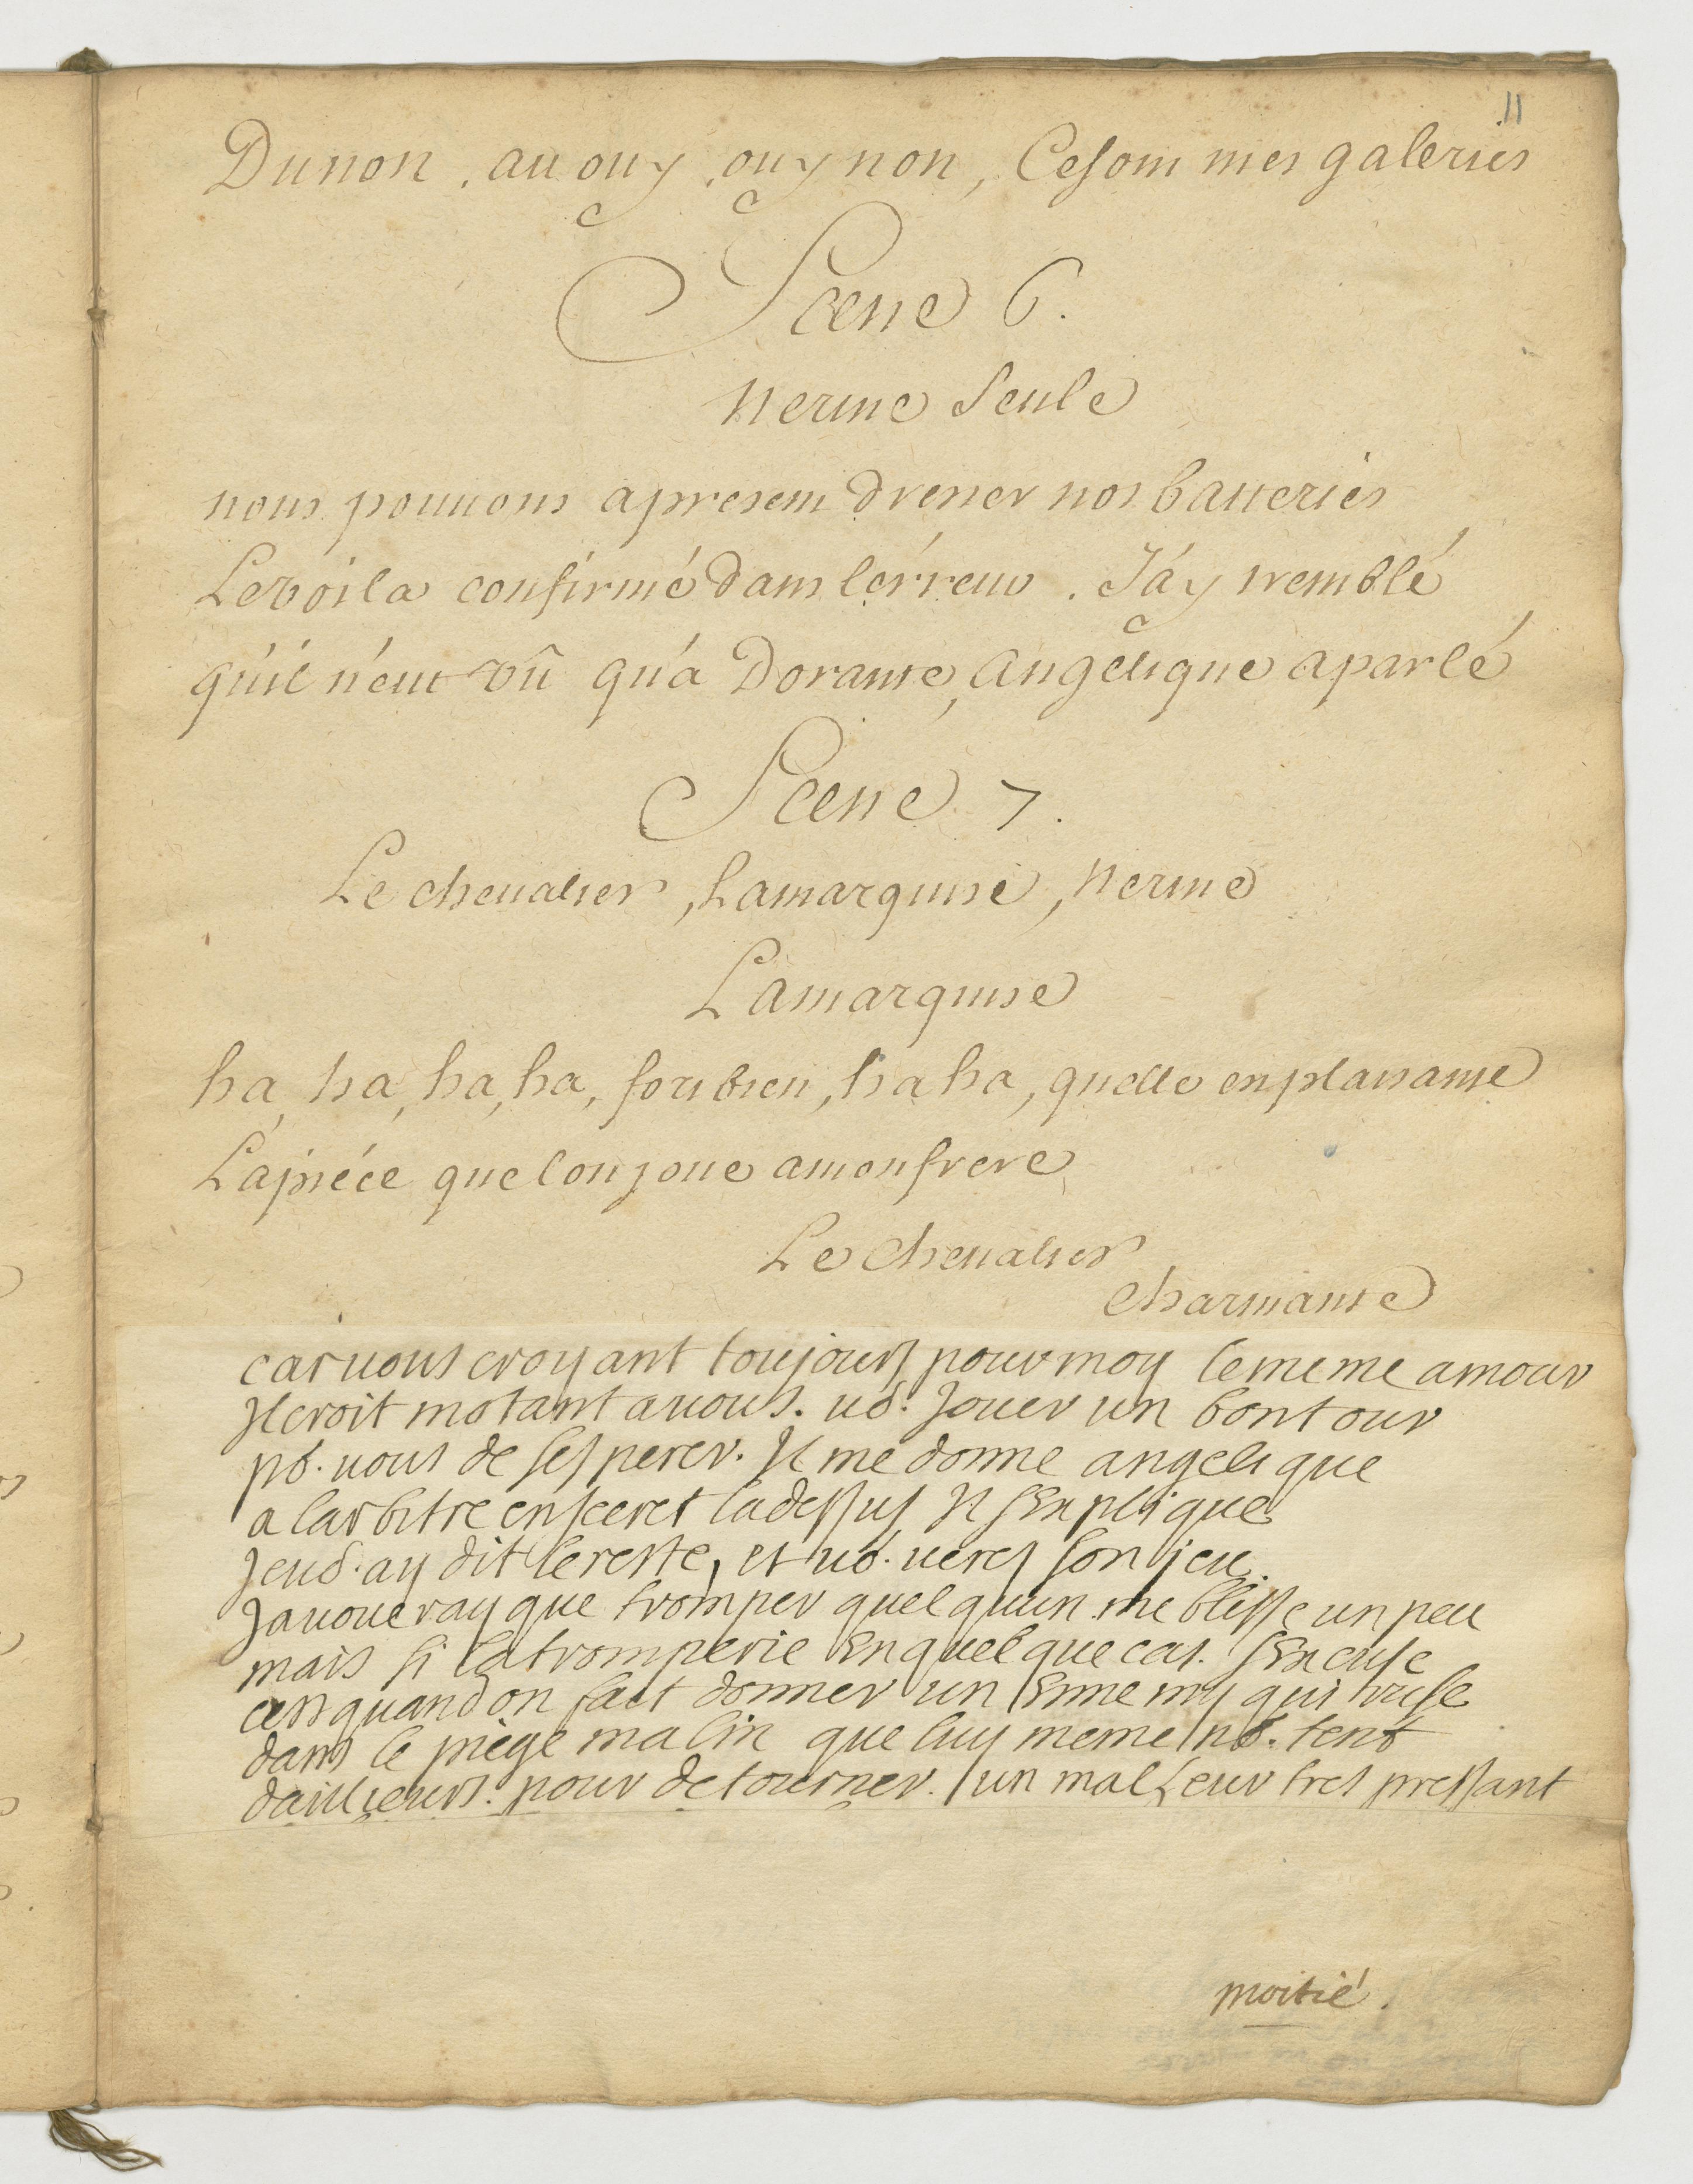 11
Dunon, au ouy, ouy non, Cesont mes galeries
Scene 6.
Nerine Seule
nous pouuons apresent dresser nos batteries
Levoila confirmé dans lérreur. J'áy tremblé
qu'il n'eut vû qu'a Dorante, angelique aparlé
Scene 7.
Le cheualier, Lamarquise, Nerine
Lamarquise
ha, ha, ha, ha, fort bien, ha ha, quelle est plaisante
Lapiéce que lon joue amonfrere
Le cheualier
charmante
car uous croyant toujours pour moy le meme amour
Il croit motant auous. uo. Jouer un bon tour
po. uous de sesperer. Il me donne angelique
a larbitre en secret ladessus Il sExplique
Jeuo. ay dit le reste, et uo. uerez son jeu.
Jauoueray que tromper quelquun me blesse un peu
mais si la tromperie En quelque cas. sExcuse
cest quand on fait donner un Ennemy qui ruse
dans le piege malin que luy meme no. tent
dailleurs. pour detourner. un malheur tres pressant
moitié.